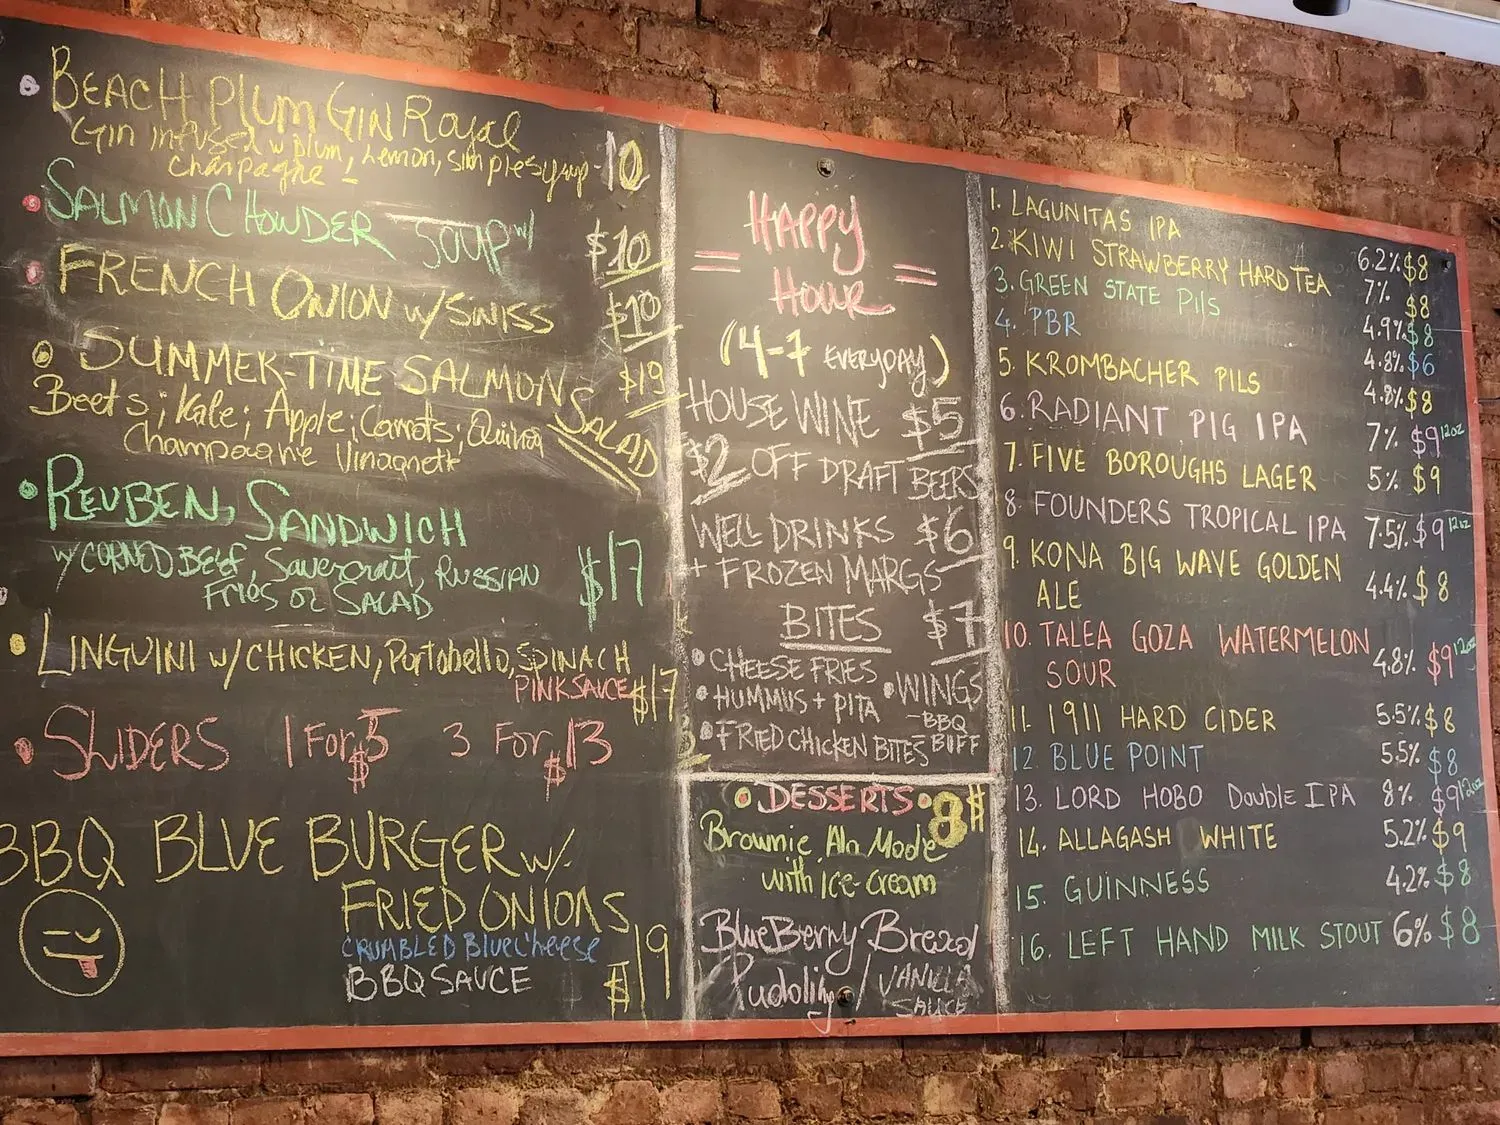 BEACH Plum GiN Royal
Gin infused w plum, Lemon, simple syrup - 10
Champagne
SALMON CHOWDER SOUP w/ $10
FRENCH ONION w/ SWISS $10
SUMMER-TIME SALMON SALAD $19
Beets; Kale; Apple; Carrots; Quinoa
Champagne Vinagrette
REUBEN, SANDWICH
w/ CORNED BEEF, Sauercraut, RUSSIAN $17
FRIES OR SALAD
LINGUINI w/ CHICKEN, Portobello, SPINACH
PINK SAUCE $17
SLIDERS 1 For $5 3 For $13
BBQ BLUE BURGER w/
FRIED ONIONS
CRUMBLED Blue Cheese $19
BBQ SAUCE
HAPPY
HOUR
(4-7 EVERYDAY)
HOUSE WINE $5
$2 OFF DRAFT BEERS
WELL DRINKS $6
+ FROZEN MARGS
BITES $7
• CHEESE FRIES
• HUMMUS + PITA
• FRIED CHICKEN BITES
• WINGS
- BBQ
- BUFF
• DESSERTS • 8$
Brownie Ala Mode
with Ice-Cream
BlueBerry Bread
Pudding / VANILLA
SAUCE
1. LAGUNITAS IPA 6.2% $8
2. KIWI STRAWBERRY HARD TEA 7% $8
3. GREEN STATE PilS 4.9% $8
4. PBR 4.8% $6
5. KROMBACHER PILS 4.8% $8
6. RADIANT PIG IPA 7% $9 12oz
7. FIVE BOROUGHS LAGER 5% $9
8. FOUNDERS TROPICAL IPA 7.5% $9 12oz
9. KONA BIG WAVE GOLDEN
ALE 4.4% $8
10. TALEA GOZA WATERMELON
SOUR 4.8% $9 12oz
11. 1911 HARD CIDER 5.5% $8
12. BLUE POINT 5.5% $8
13. LORD HOBO DOUBLE IPA 8% $9 12oz
14. ALLAGASH WHITE 5.2% $9
15. GUINNESS 4.2% $8
16. LEFT HAND MILK STOUT 6% $8